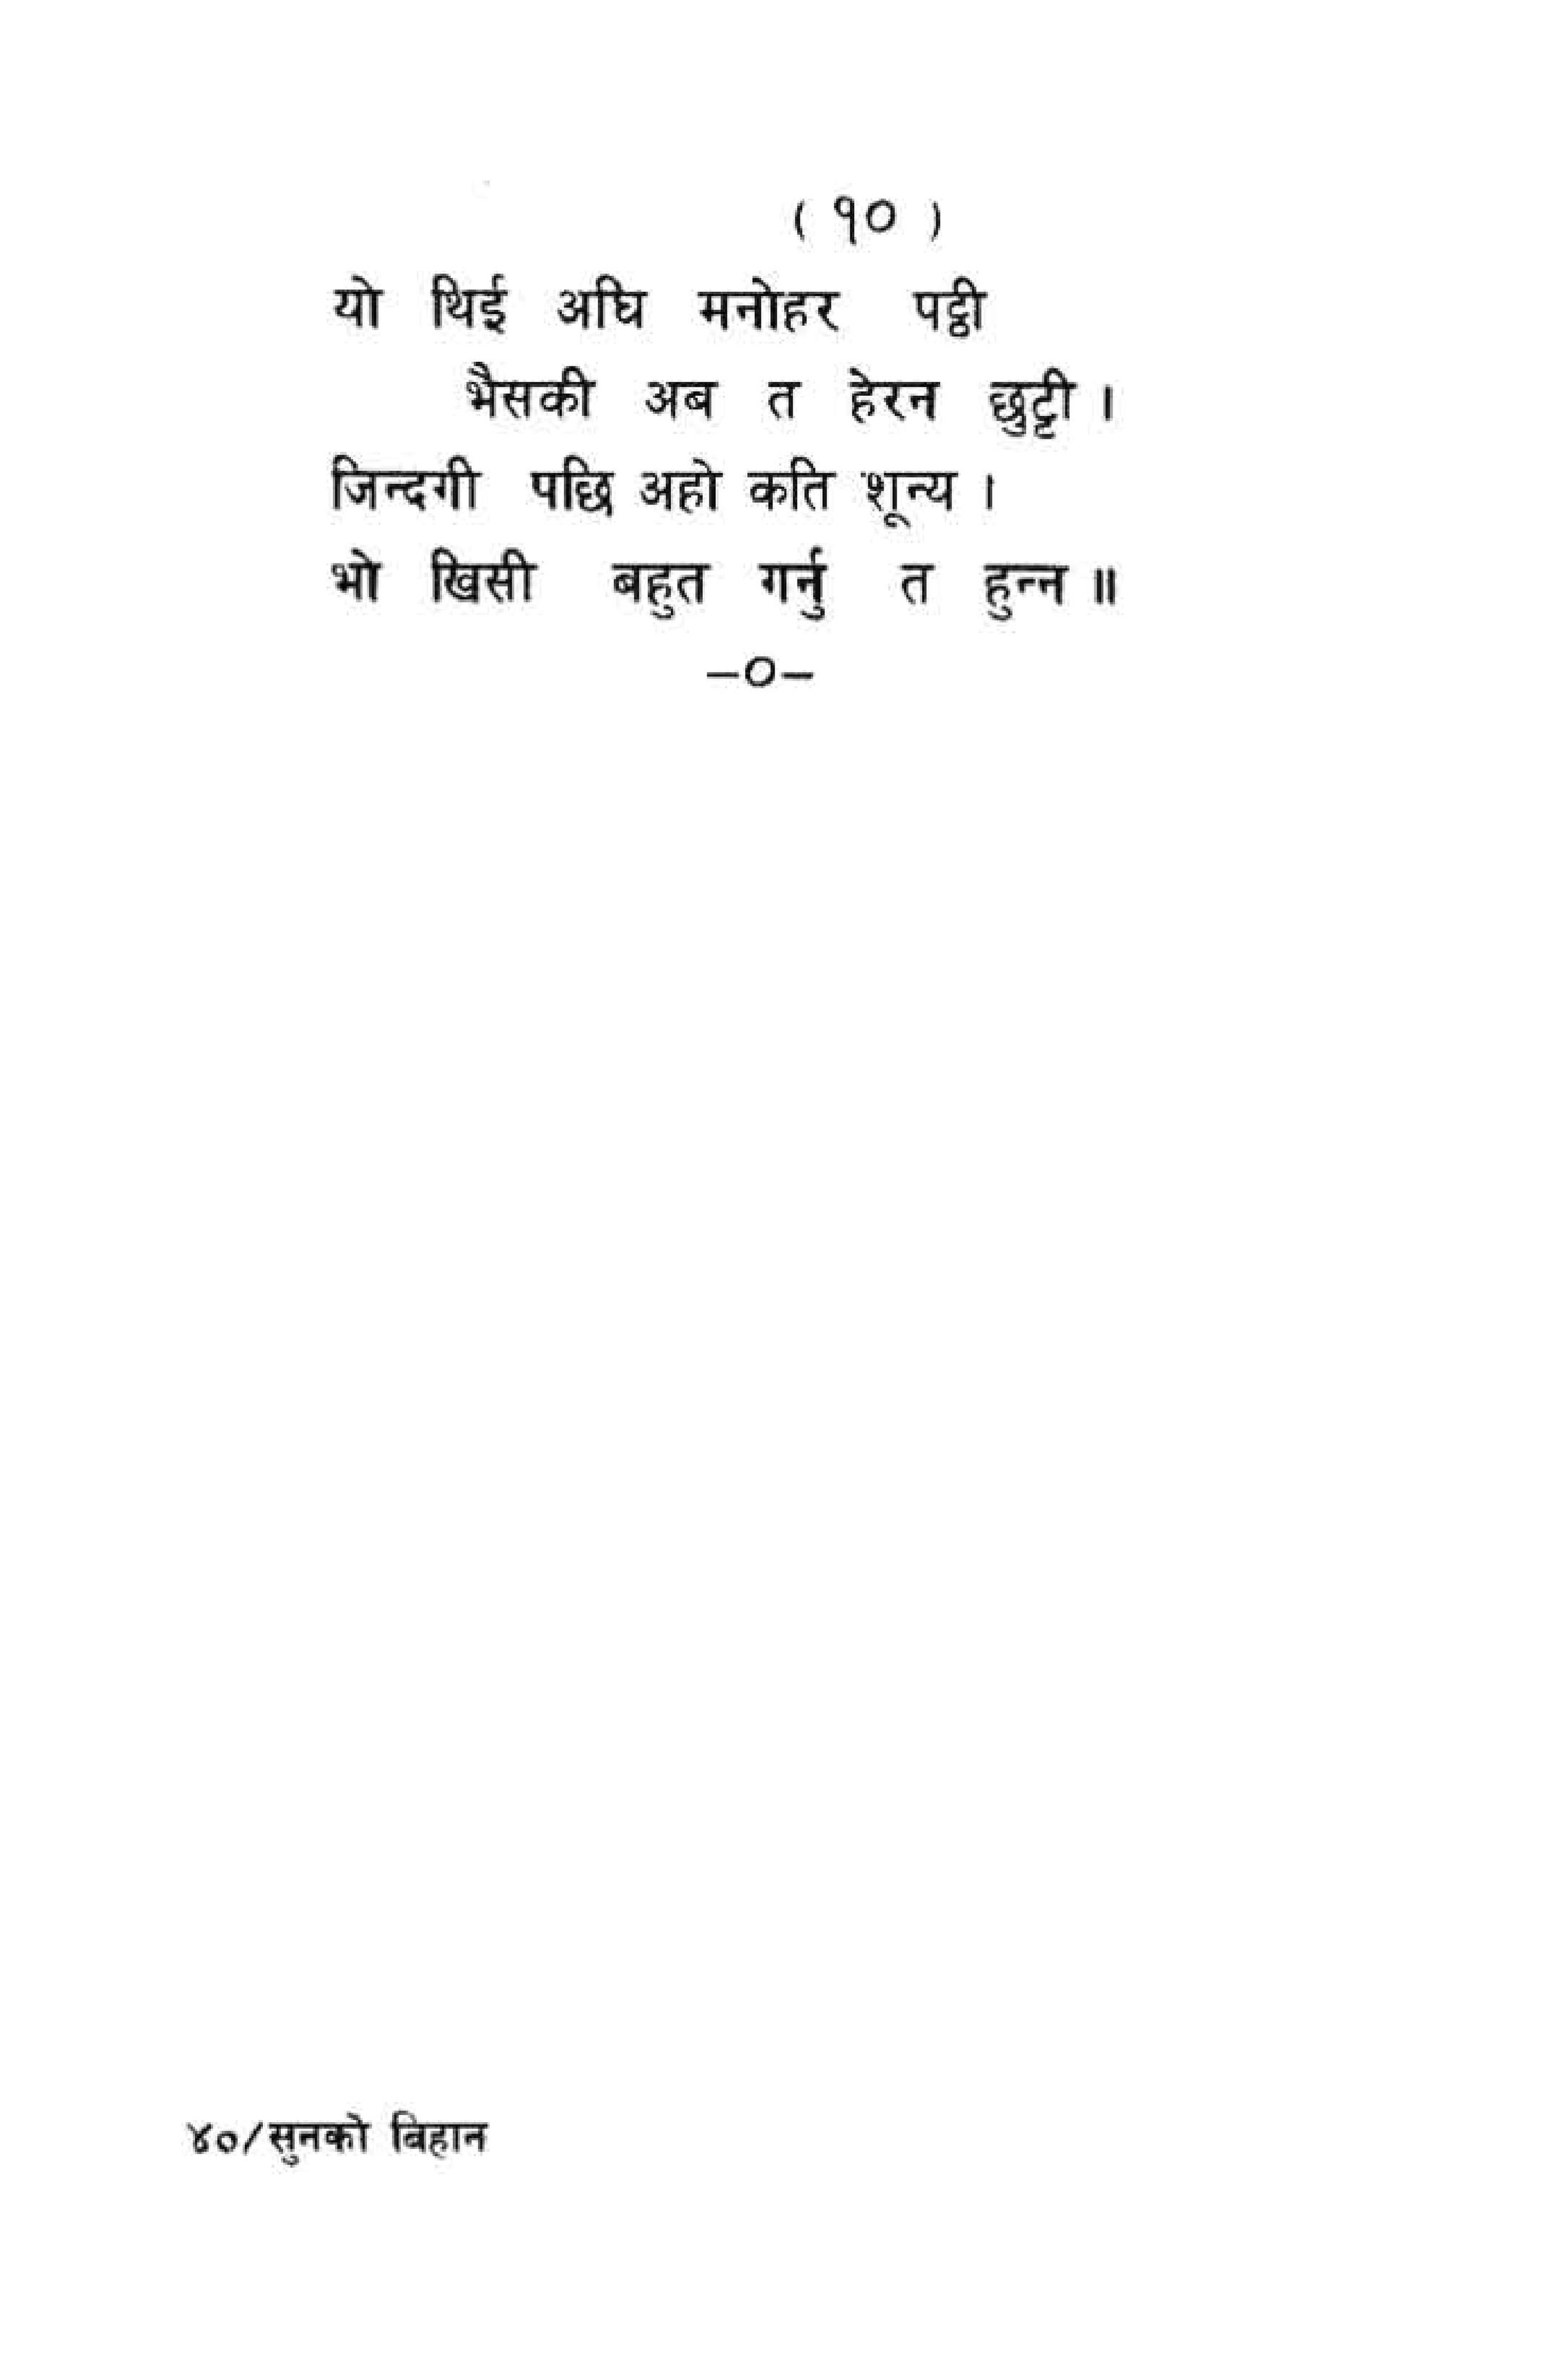 ( १० )
यो थिई अघि मनोहर पट्ठी
भैसकी अब त हेरन छुट्टी ।
जिन्दगी पछि अहो कति शून्य ।
भो खिसी बहुत गर्नु त हुन्न ॥
—०—
४०/सुनको बिहान